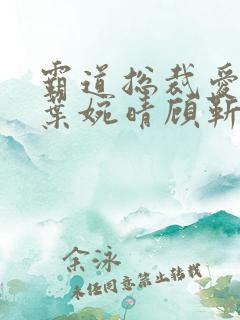 霸道总裁爱
葉婉晴顾靳
余泳
未经同意禁止转载